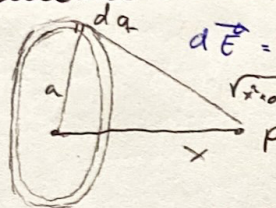 dq
d\vec{E} =
a
√x²+a
P
x